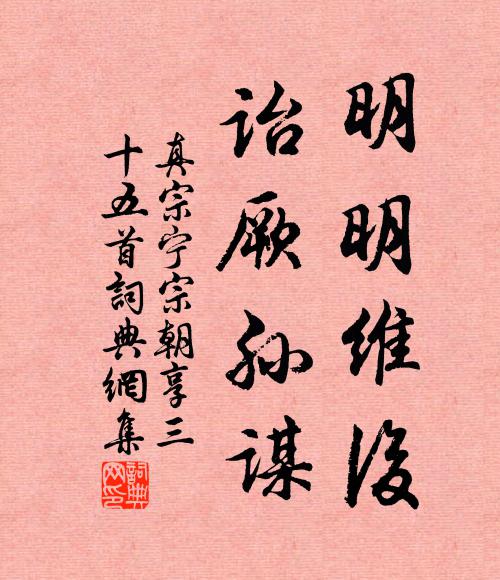 明明维後
诒厥孙谋
真宗宁宗朝享三
十五首詞典網集
詞典
网印